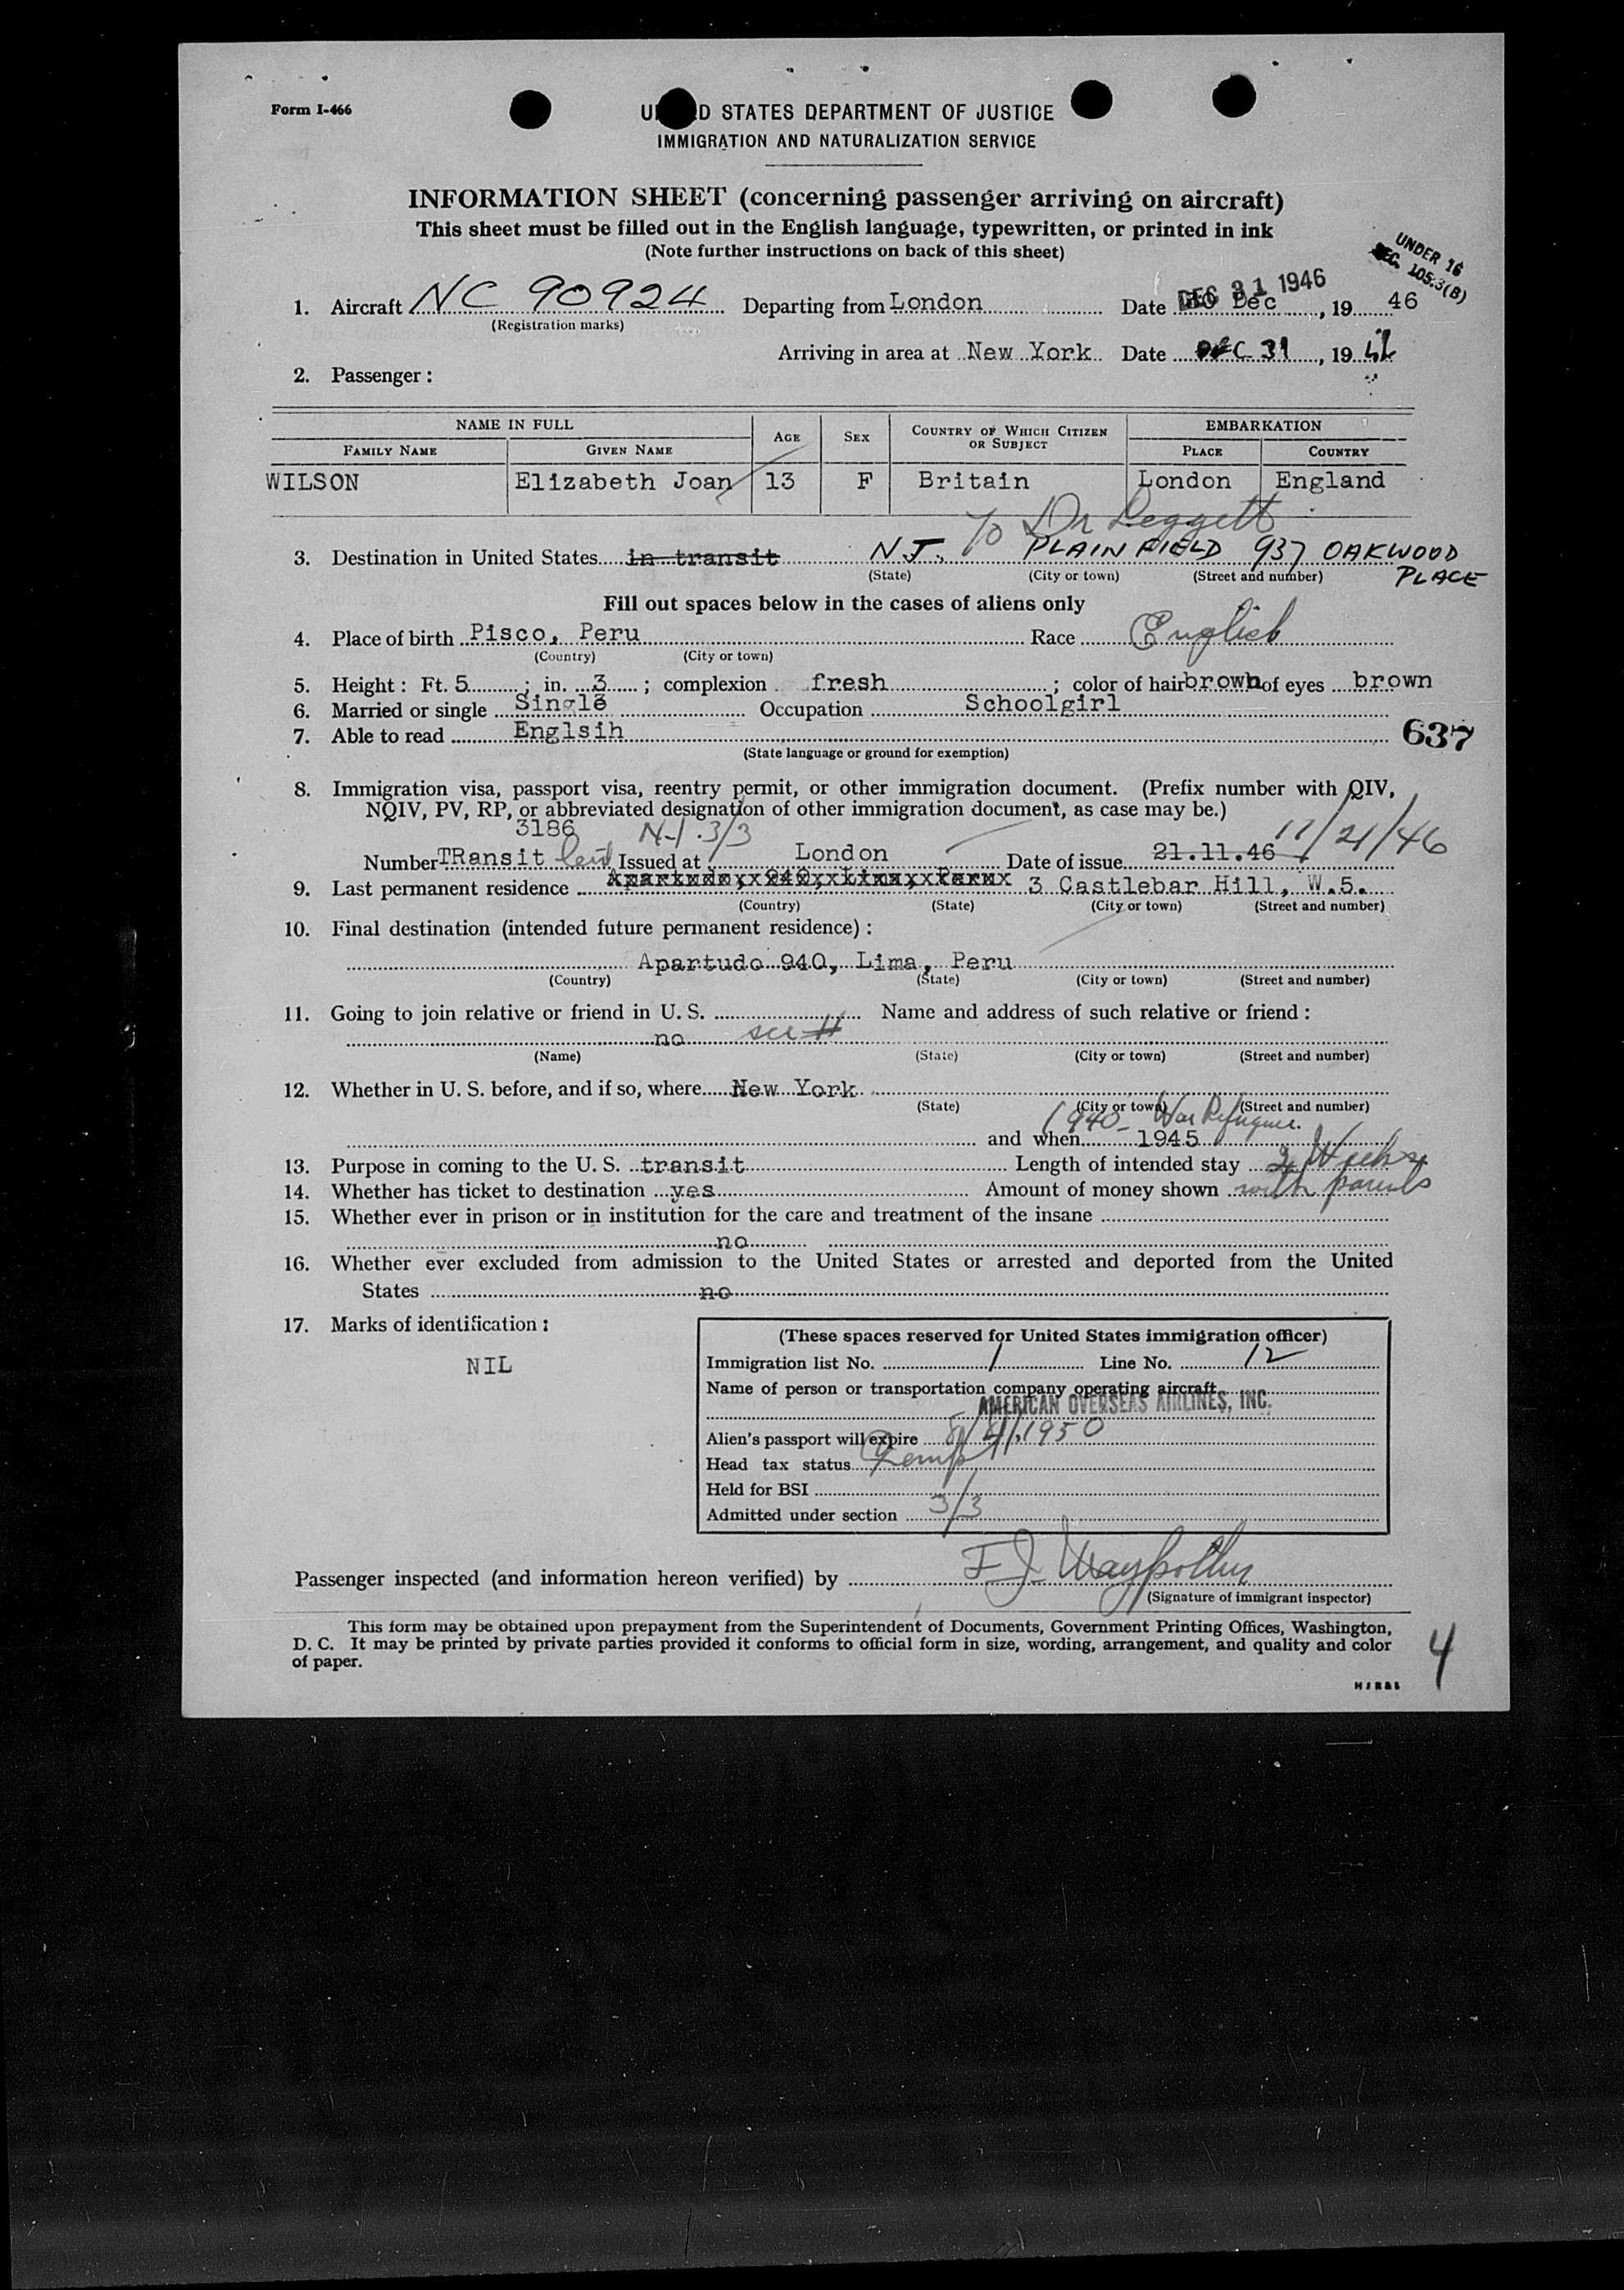 Form I-466
UNITED STATES DEPARTMENT OF JUSTICE
IMMIGRATION AND NATURALIZATION SERVICE
INFORMATION SHEET (concerning passenger arriving on aircraft)
This sheet must be filled out in the English language, typewritten, or printed in ink
(Note further instructions on back of this sheet)
UNDER 16
SEC. 105.3(B)
DEC 31 1946
1. Aircraft NC 90924 Departing from London Date Dec, 19 46
(Registration marks)
Arriving in area at New York Date DEC 31, 19 46
2. Passenger:
NAME IN FULL AGE SEX COUNTRY OF WHICH CITIZEN OR SUBJECT EMBARKATION
FAMILY NAME GIVEN NAME PLACE COUNTRY
WILSON Elizabeth Joan 13 F Britain London England
Dr Leggett
3. Destination in United States in transit N.J. PLAINFIELD 937 OAKWOOD
PLACE
(State) (City or town) (Street and number)
Fill out spaces below in the cases of aliens only
4. Place of birth Pisco, Peru Race English
(Country) (City or town)
5. Height: Ft. 5; in. 3; complexion fresh; color of hair brown of eyes brown
6. Married or single Single Occupation Schoolgirl
7. Able to read Englsih 637
(State language or ground for exemption)
8. Immigration visa, passport visa, reentry permit, or other immigration document. (Prefix number with QIV,
NQIV, PV, RP, or abbreviated designation of other immigration document, as case may be.)
3186 3/3 11/21/46
Number TRansit Issued at London Date of issue 21.11.46
9. Last permanent residence Apartudo 940, Lima, Peru 3 Castlebar Hill, W.5.
(Country) (State) (City or town) (Street and number)
10. Final destination (intended future permanent residence):
Apartudo 940, Lima, Peru
(Country) (State) (City or town) (Street and number)
11. Going to join relative or friend in U. S. Name and address of such relative or friend:
no see
(Name) (State) (City or town) (Street and number)
12. Whether in U. S. before, and if so, where New York
(State) (City or town) (Street and number)
1940- War Refugee.
and when 1945
13. Purpose in coming to the U. S. transit Length of intended stay 2 Weeks
14. Whether has ticket to destination yes Amount of money shown with parents
15. Whether ever in prison or in institution for the care and treatment of the insane
no
16. Whether ever excluded from admission to the United States or arrested and deported from the United
States no
17. Marks of identification:
NIL
(These spaces reserved for United States immigration officer)
Immigration list No. 1 Line No. 12
Name of person or transportation company operating aircraft
AMERICAN OVERSEAS AIRLINES, INC.
Alien's passport will expire 1950
Head tax status
Held for BSI
Admitted under section 3/3
Passenger inspected (and information hereon verified) by
(Signature of immigrant inspector)
This form may be obtained upon prepayment from the Superintendent of Documents, Government Printing Offices, Washington,
D. C. It may be printed by private parties provided it conforms to official form in size, wording, arrangement, and quality and color
of paper.
4